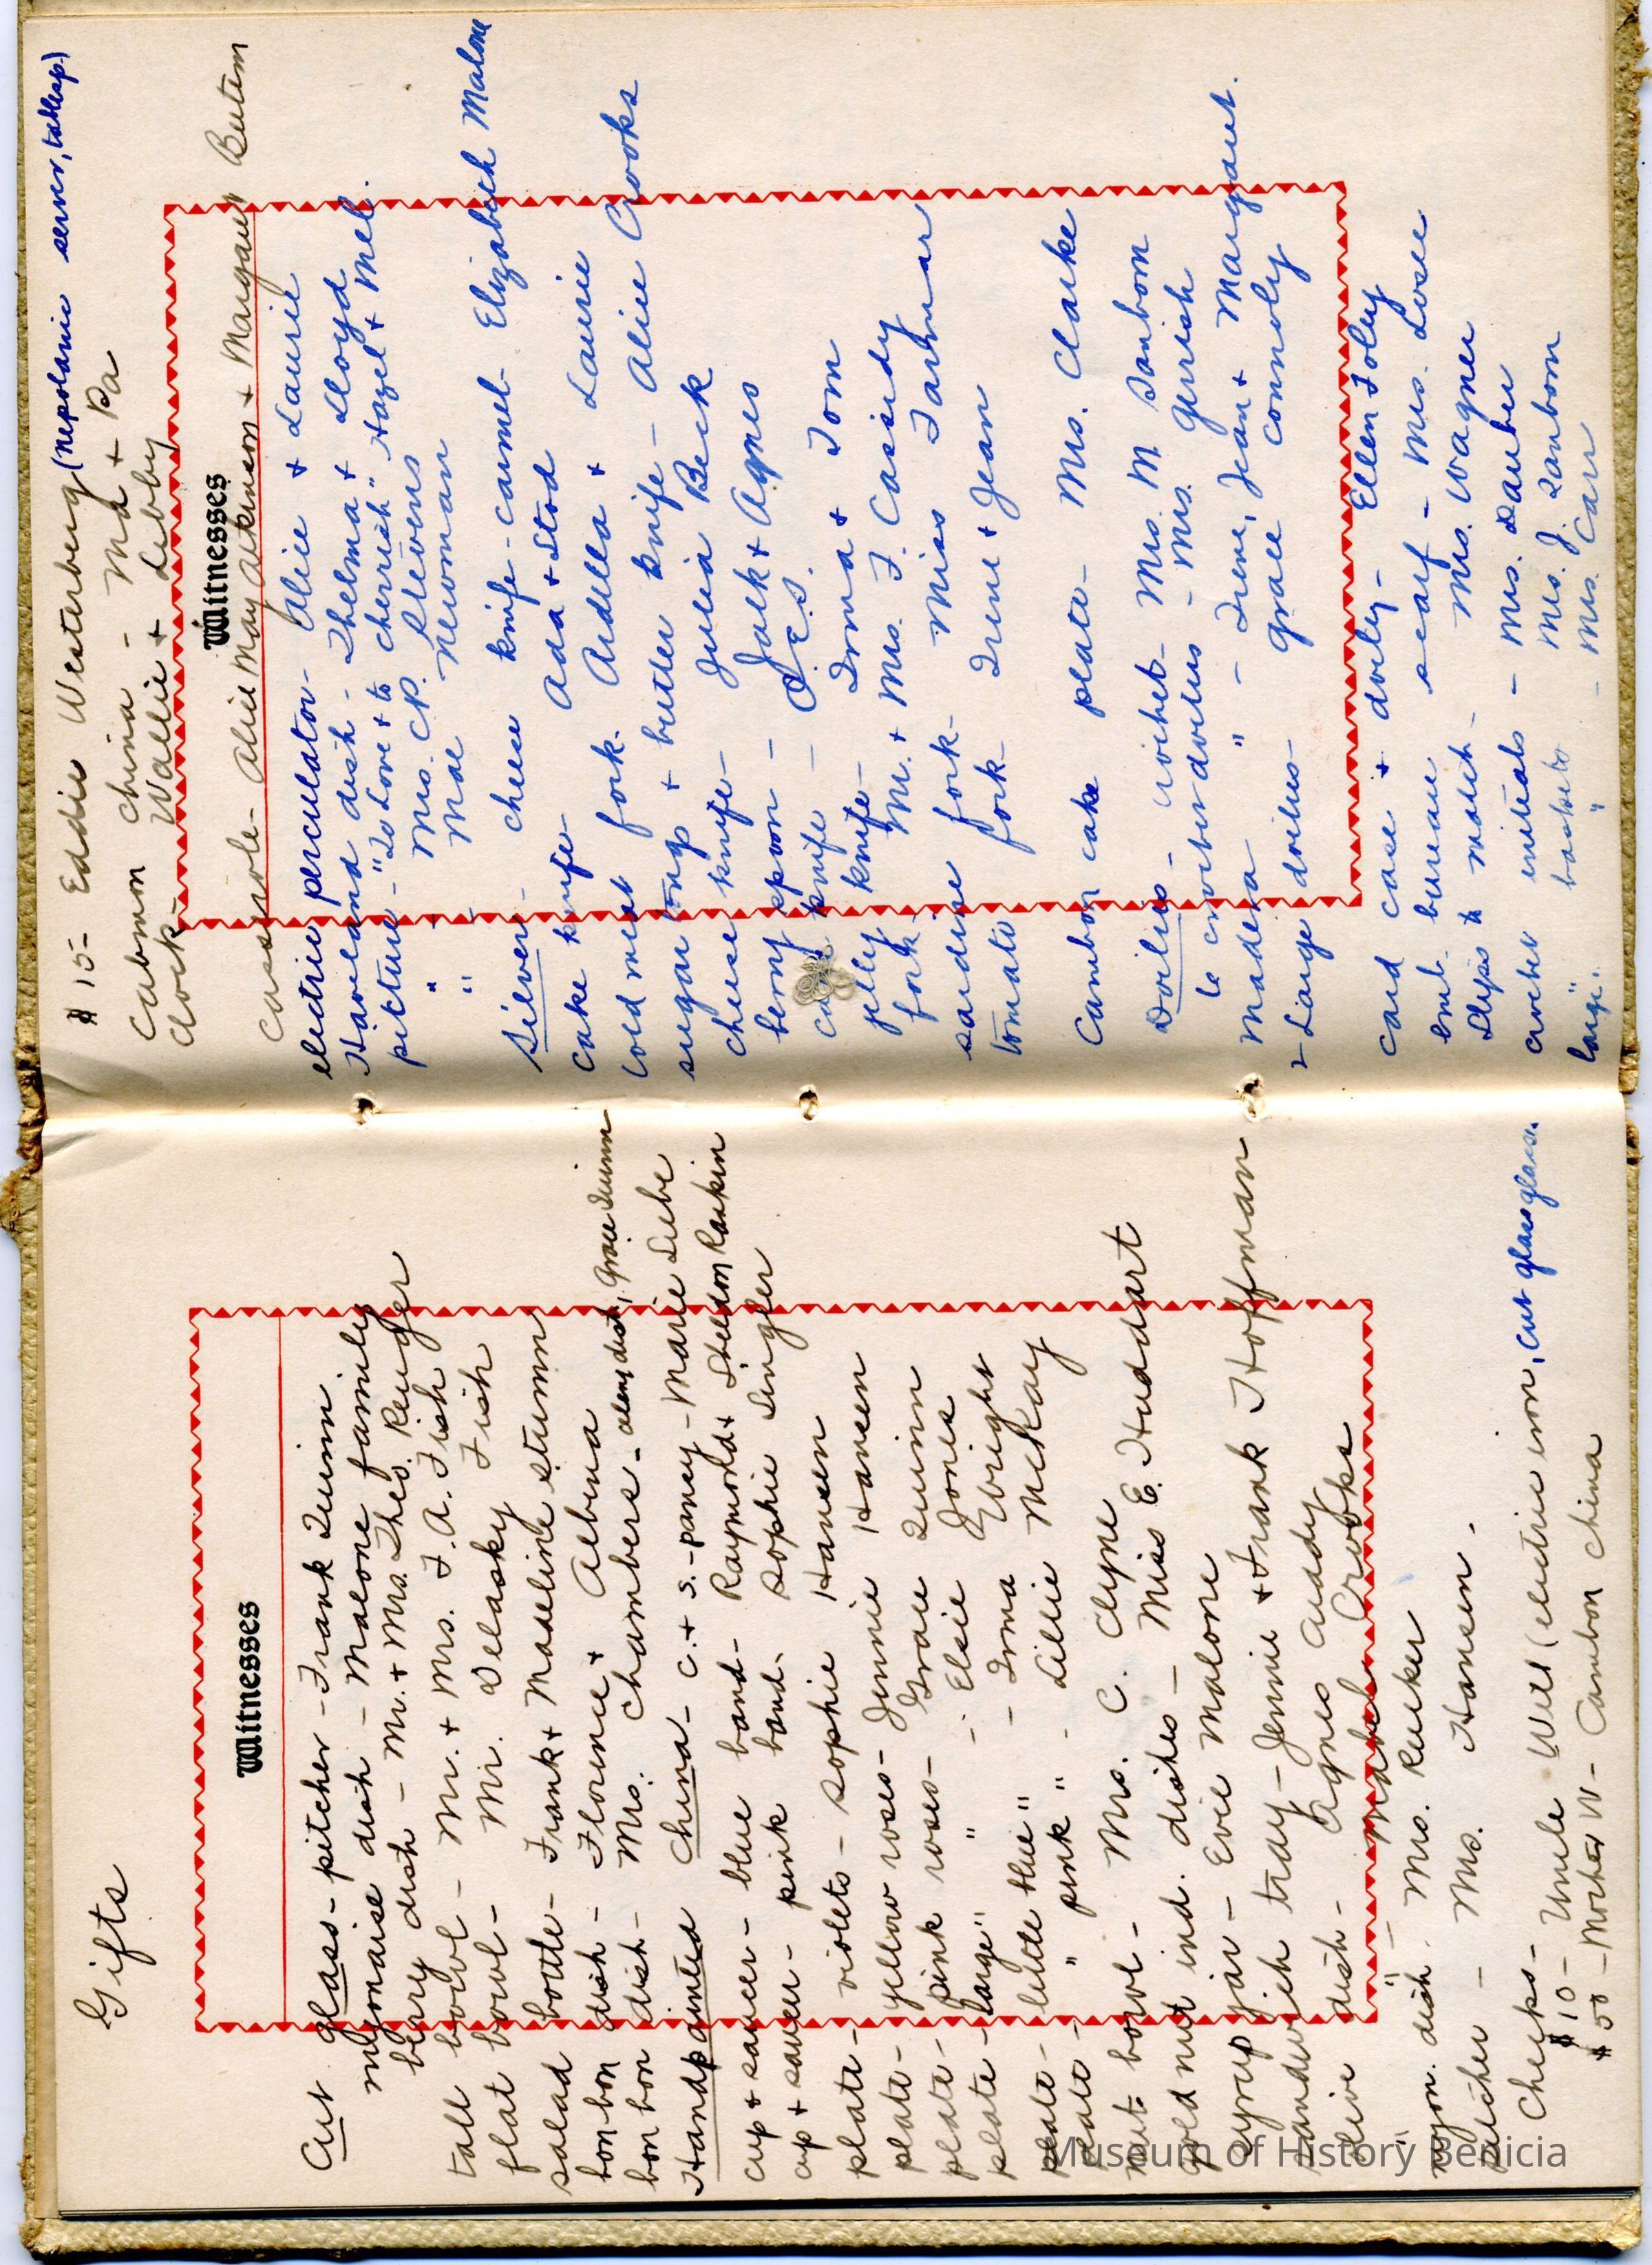 Gifts
Witnesses
Cut glass - pitcher - Frank Quinn
mayonaise dish - Malone family
berry dish - Mr. + Mrs. Theo. Reuger
tall bowl - Mr. + Mrs. F. A. Fish
flat bowl - Mr. Delasky Fish
salad bowl - Frank + Madeline Stumm
bon bon dish - Florence + Albena
bon bon dish - Mrs. Chambers - dish, Grace Quinn
Handpainted China - C. + S. - pansy - Marie Lube
cup + saucer - blue band - Raymond + Sheldon Rankin
cup + saucer - pink band - Sophie Singler
plate - violets - Sophie Hansen
plate - yellow roses - Jennie Hansen
plate - pink roses - Grace Quinn
plate - large " " - Elsie Jones
plate - little blue " - Irma Ebright
plate - " pink " - Lillie McKay
nut bowl - Mrs. C. Clyne
gold nut ind. dishes - Miss E. Huddart
syrup jar - Evie Malone
sandwich tray - Jennie + Frank Hoffman
olive dish - Agnes Cuddy
" " - Mabel Crooks
mayon. dish - Mrs. Rueker
pitcher - Mrs. Hansen -
Checks -
$10 - Uncle Will (electric iron, cut glass glasses.
$50 - Mother W - Cambon china
$15 - Eddie Westerburg (nepolanic server, tablesp.)
Cabmon china - Ma + Pa
Clock - Wallie + Libby
Witnesses
Casserole - Alice May Atkinson + Margaret Butem
electric perculator - Alice + Laurie
Haveland dish - Thelma + Lloyd
picture - "To Love + to cherrish" Hazel + Mel.
" - Mrs. C.P. Stevens
" - Mae Neuman
Silver - cheese knife - Carmel - Elizabeth Malone
cake knife - Ada + Stod
cold meat fork - Ardella + Laurie
sugar tongs + butter knife - Alice Crooks
cheese knife - Julia Beck
berry spoon - Jack + Agnes
cake knife - O. E. S.
jelly knife - Irma + Tom
fork - Mr. + Mrs. F. Cassidy
sardine fork - Miss Farhnar
tomato fork - June + Jean
Cambon cake plate - Mrs. Clarke
Doilies - crochet - Mrs. M Sanborn
6 crochet doilies - Mrs. Gerrish
Madera " - Irene, Jean + Margaret.
2 Large doilies - Grace Connoly
card case + doily - Ellen Foley
emb. bureau scarf - Mrs. Lose
slips to match - Mrs. Wagner
crochet initials - Mrs. Dauber
" baskets Mrs. J. Sanborn
large " - Mrs. Carr
Museum of History Benicia